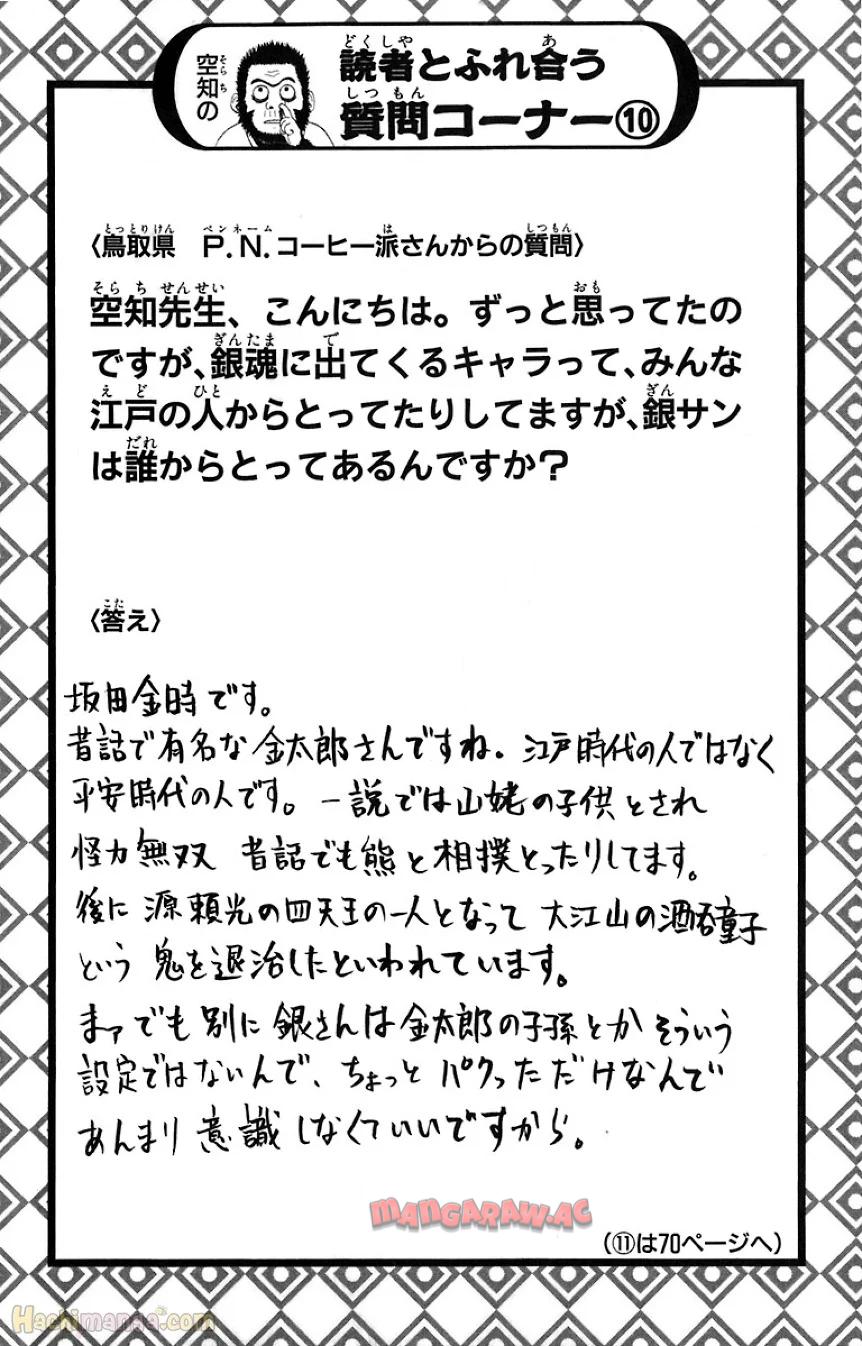 空知の
読者とふれ合う
質問コーナー⑩
〈鳥取県　P.N.コーヒー派さんからの質問〉
空知先生、こんにちは。ずっと思ってたの
ですが、銀魂に出てくるキャラって、みんな
江戸の人からとってたりしてますが、銀サン
は誰からとってあるんですか？
〈答え〉
坂田金時です。
昔話で有名な金太郎さんですね。江戸時代の人ではなく
平安時代の人です。一説では山姥の子供とされ
怪力無双　昔話でも熊と相撲とったりしてます。
後に源頼光の四天王の一人となって大江山の酒呑童子
という鬼を退治したといわれています。
まァでも別に銀さんは金太郎の子孫とかそういう
設定ではないんで、ちょっとパクっただけなんで
あんまり意識しなくていいですから。
MANGARAW.AC
（⑪は70ページへ）
Hachimanga.com